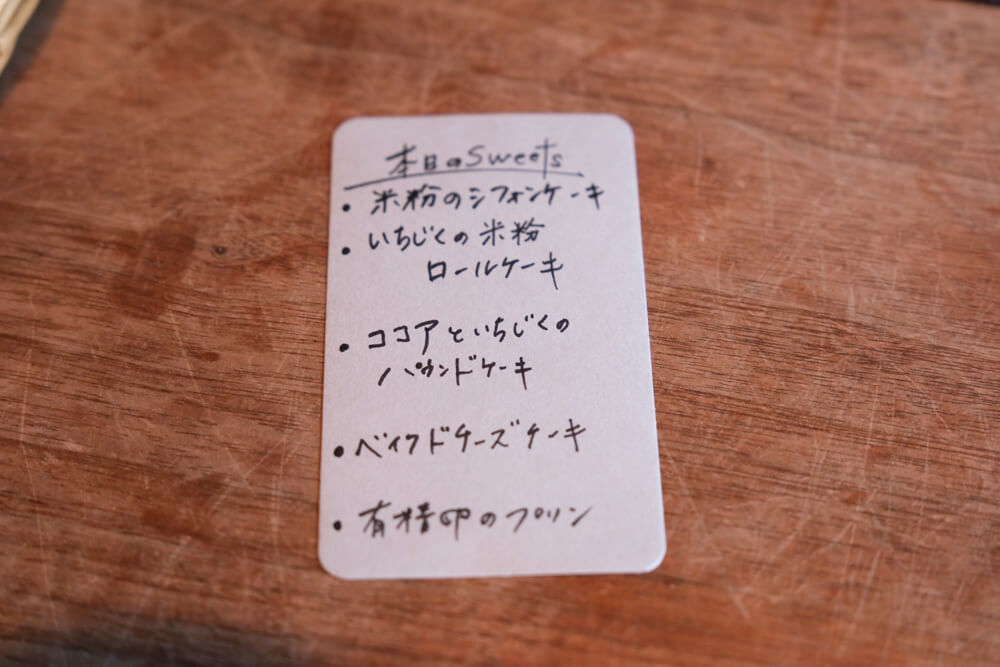 本日のSweets
・米粉のシフォンケーキ
・いちじくの米粉
ロールケーキ
・ココアといちじくの
パウンドケーキ
・ベイクドチーズケーキ
・有精卵のプリン